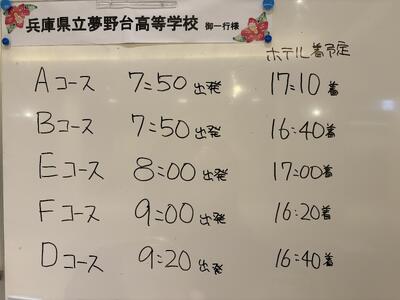 兵庫県立夢野台高等学校 御一行様
ホテル着予定
Aコース 7:50出発 17:10着
Bコース 7:50出発 16:40着
Eコース 8:00出発 17:00着
Fコース 9:00出発 16:20着
Dコース 9:20出発 16:40着